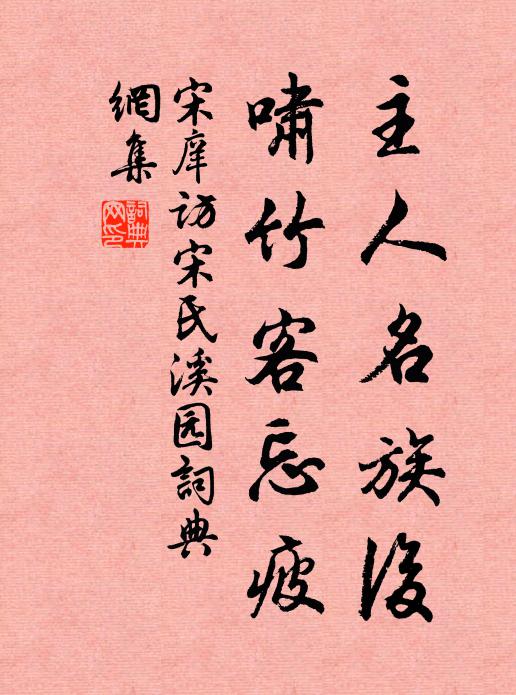 主人名族後
嘯竹客忘疲
宋庠访宋氏溪园詞典
網集
詞典網印